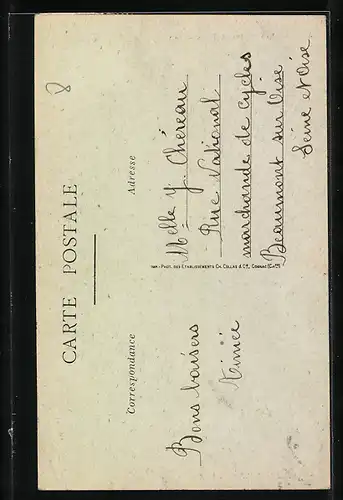 8
CARTE POSTALE
Correspondance
Adresse
Bons baisers
Melle Y. Chéreau
Rue National
marchande de cycles
Beaumont sur Oise
Seine et Oise
IMP.-PHOT. DES ETABLISSEMENTS CH. COLLAS & Cie, COGNAC